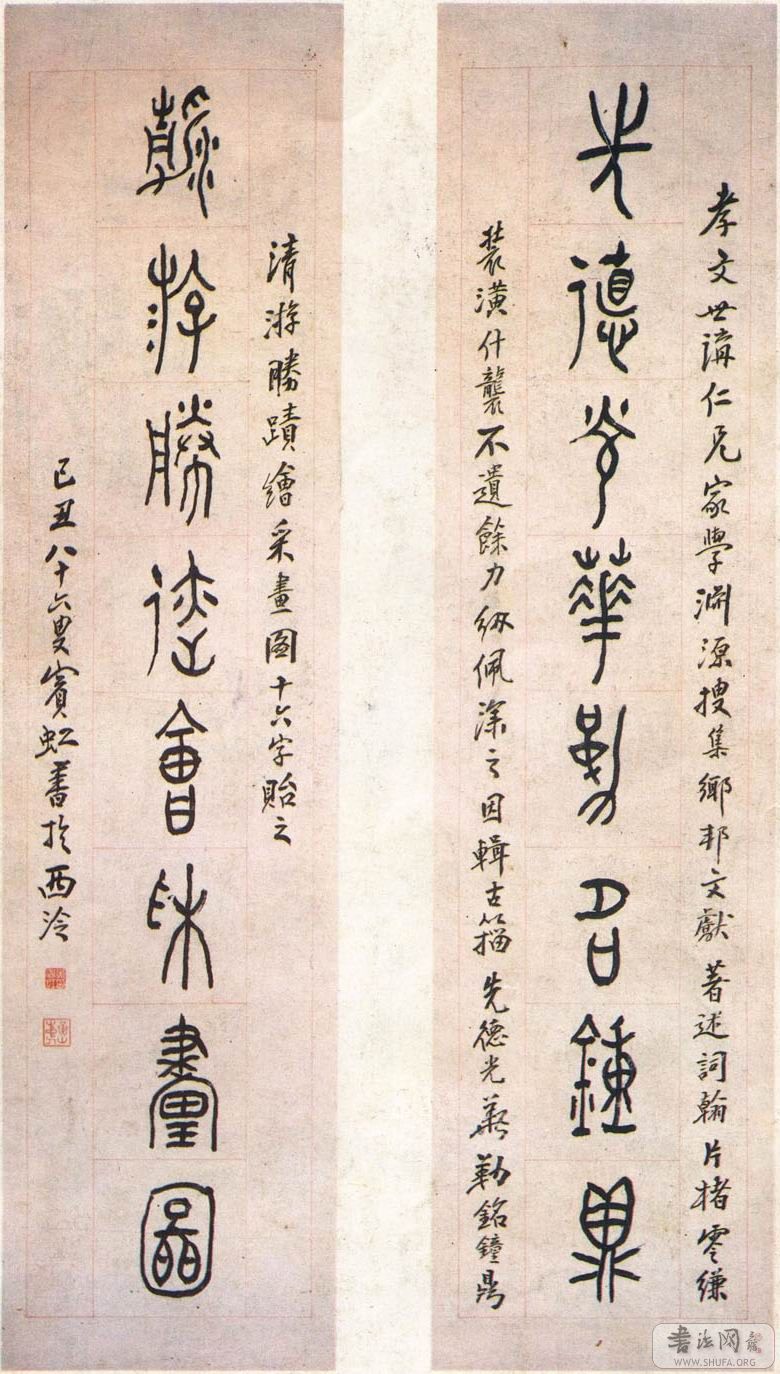 孝文世講仁兄家學淵源搜集鄉邦文獻著述詞翰片楮零縑
先德光華勒名鐘鼎
裝潢什襲不遺餘力紉佩深之因輯古籀先德光華勒銘鐘鼎
清游勝蹟繪采畫圖十六字貽之
清游勝蹟繪采畫圖
己丑八十六叟賓虹書於西泠
書法网
WWW.SHUFA.ORG